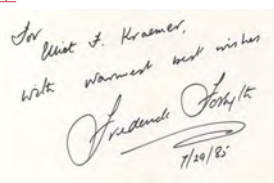 For
Elliot F. Kraemer,
with warmest best wishes
Frederick Forsyth
7/29/85